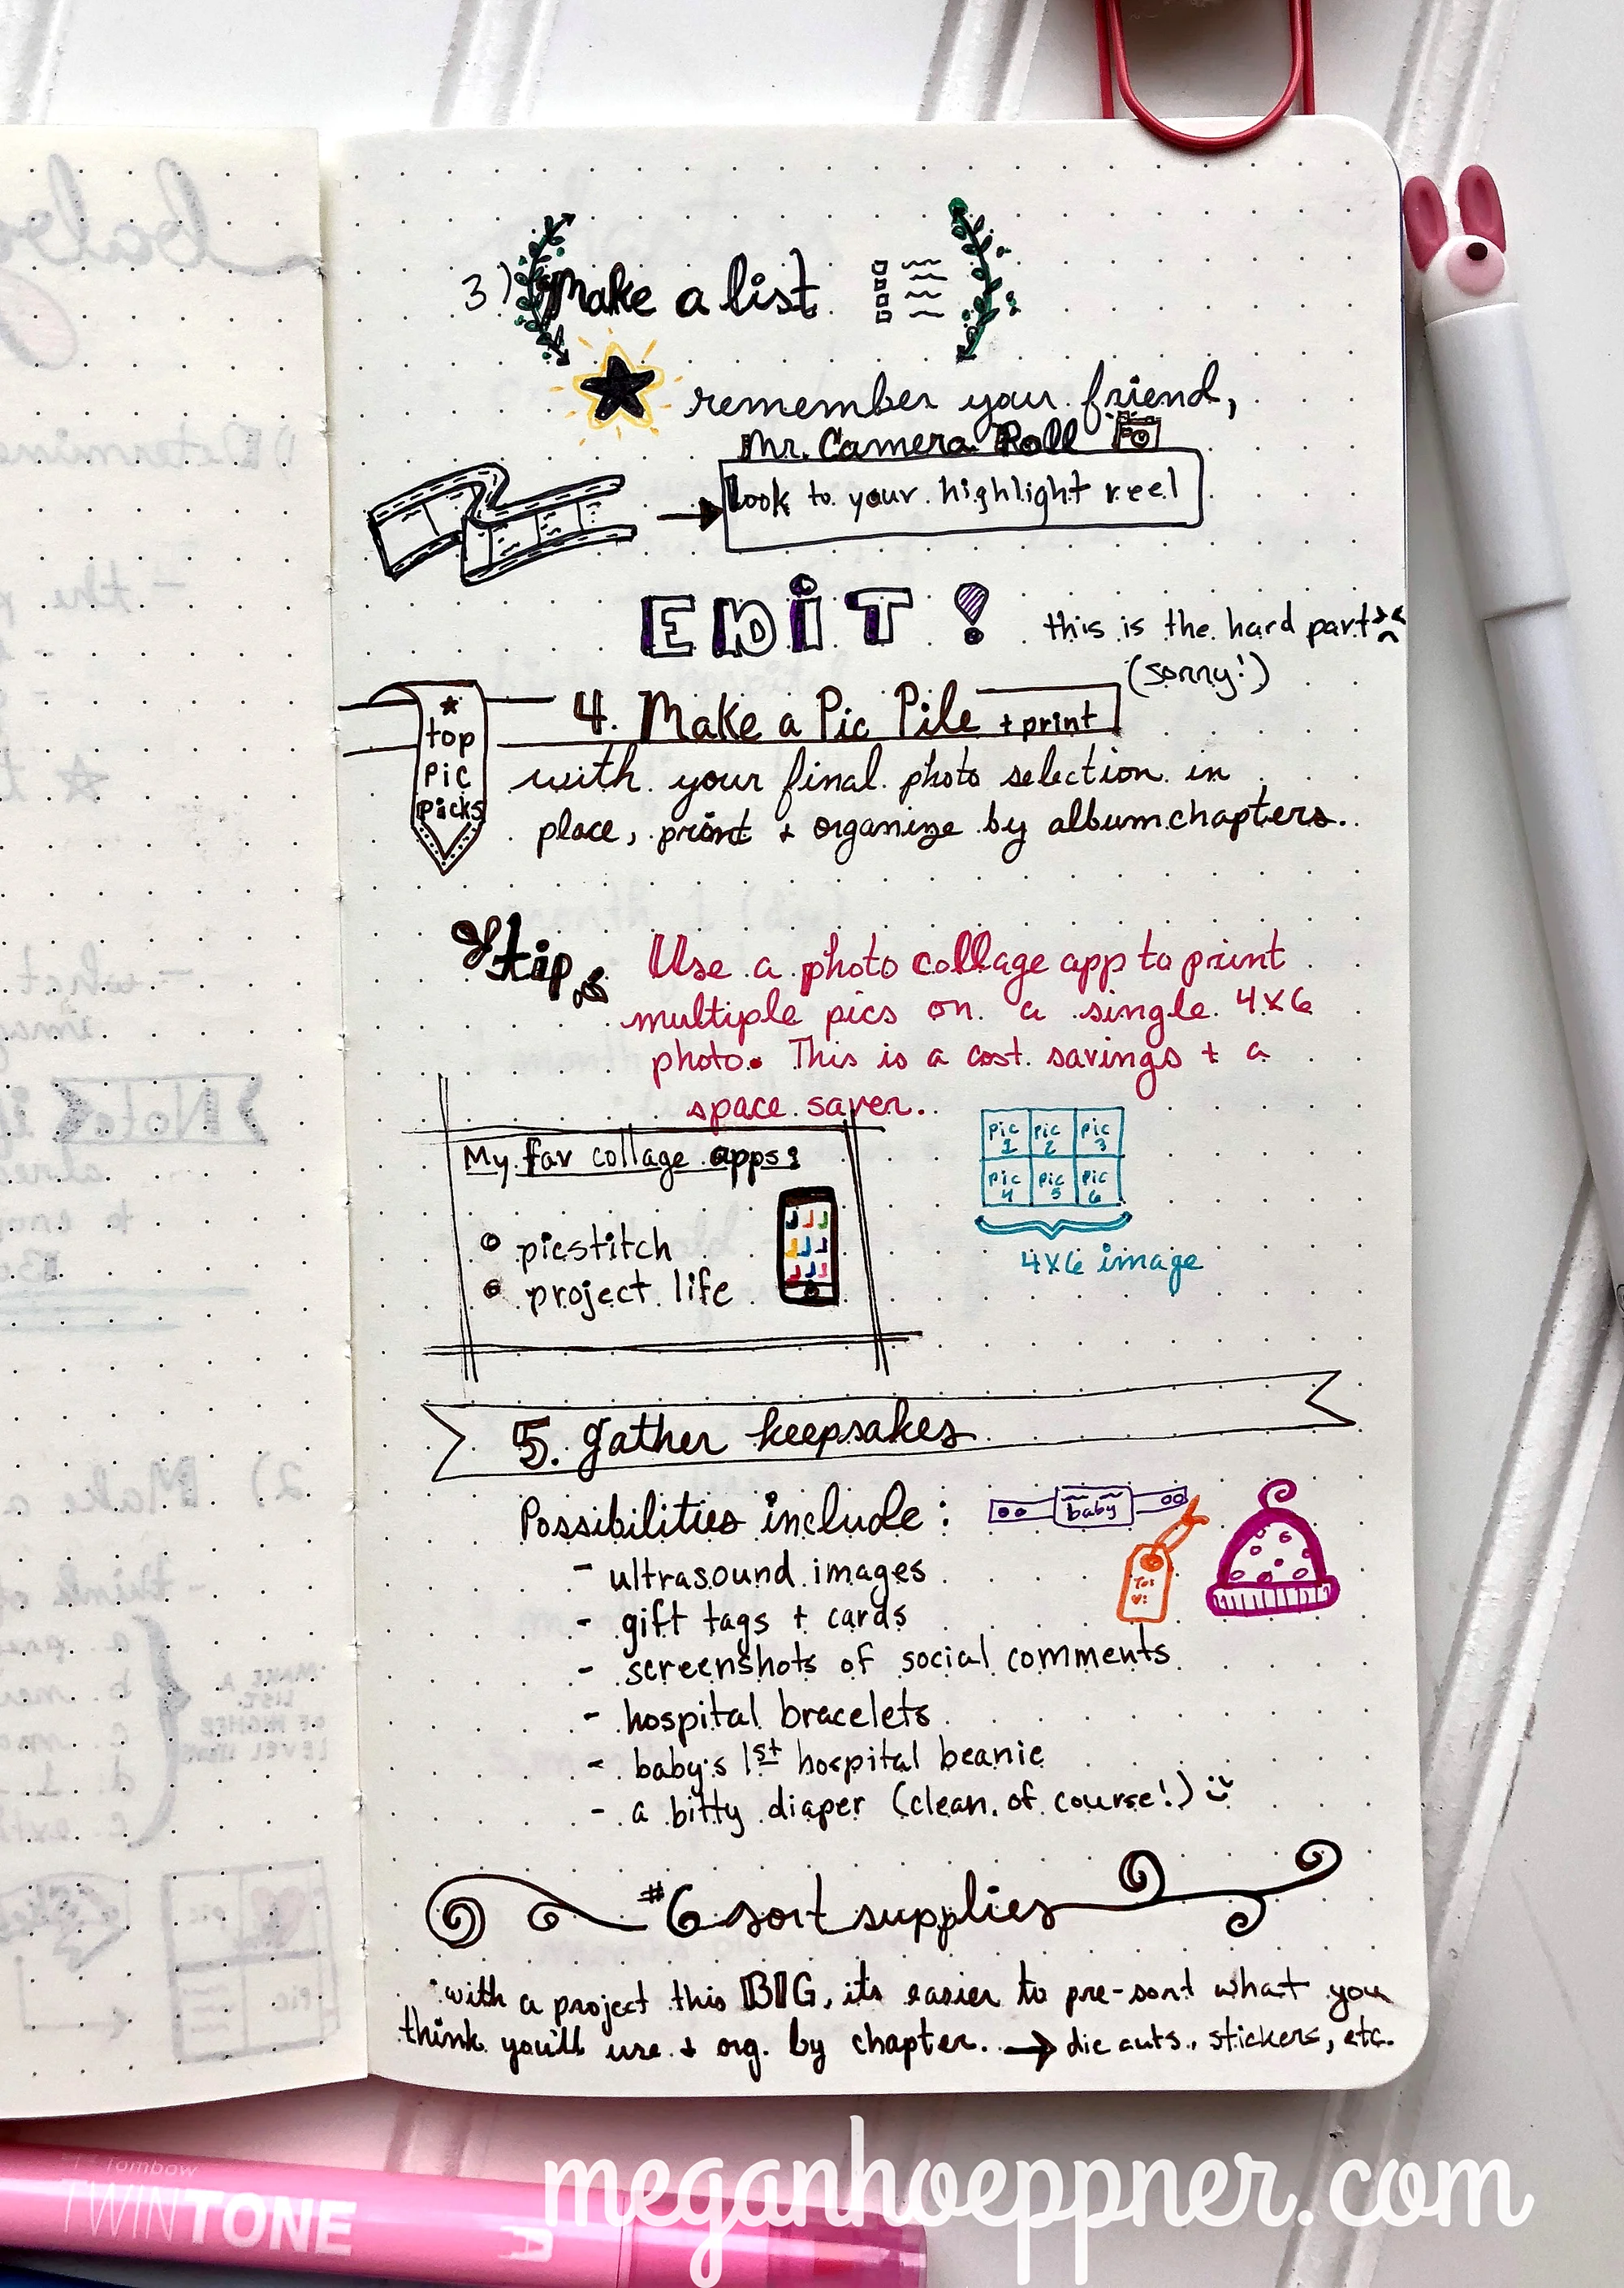 3) Make a list
remember your friend,
Mr. Camera Roll
look to your highlight reel
EDIT!
this is the hard part
(sorry!)
top
pic
picks
4. Make a Pic Pile + print
with your final photo selection in
place, print + organize by album chapters.
tip
Use a photo collage app to print
multiple pics on a single 4x6
photo. This is a cost savings + a
space saver.
My fav collage apps:
picstitch
project life
pic 1 pic 2 pic 3
pic 4 pic 5 pic 6
4x6 image
5. gather keepsakes
Possibilities include:
baby
To:
- ultrasound images
- gift tags + cards
- screenshots of social comments
- hospital bracelets
- baby's 1st hospital beanie
- a bitty diaper (clean, of course!)
#6 sort supplies
with a project this BIG, its easier to pre-sort what you
think you'll use + org. by chapter. → die cuts, stickers, etc.
baby
1) Determine
- the
- what
Note
2) Make a
- think of
MAKE A
LIST
OF HIGHER
LEVEL
pic
Tombow
TWINTONE
meganhoeppner.com